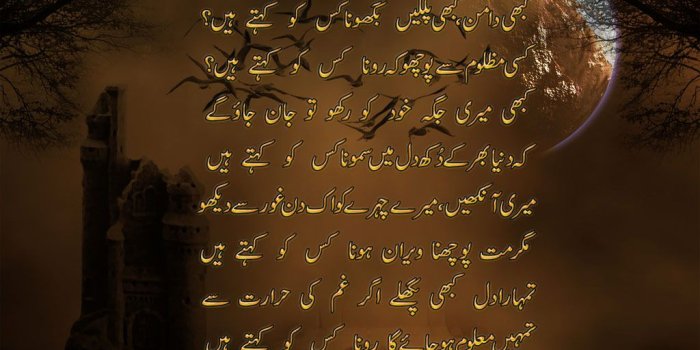 کبھی دامن، کبھی پلکیں بھگونا کس کو کہتے ہیں؟
کسی مظلوم سے پوچھو کہ رونا کس کو کہتے ہیں؟
کبھی میری جگہ خود کو رکھو تو جان جاؤ گے
کہ دنیا بھر کے دُکھ دل میں سمونا کس کو کہتے ہیں
میری آنکھیں، میرے چہرے کو اک دن غور سے دیکھو
مگر مت پوچھنا ویران ہونا کس کو کہتے ہیں
تمہارا دل کبھی پگھلے اگر غم کی حرارت سے
تمہیں معلوم ہو جائے گا رونا کس کو کہتے ہیں